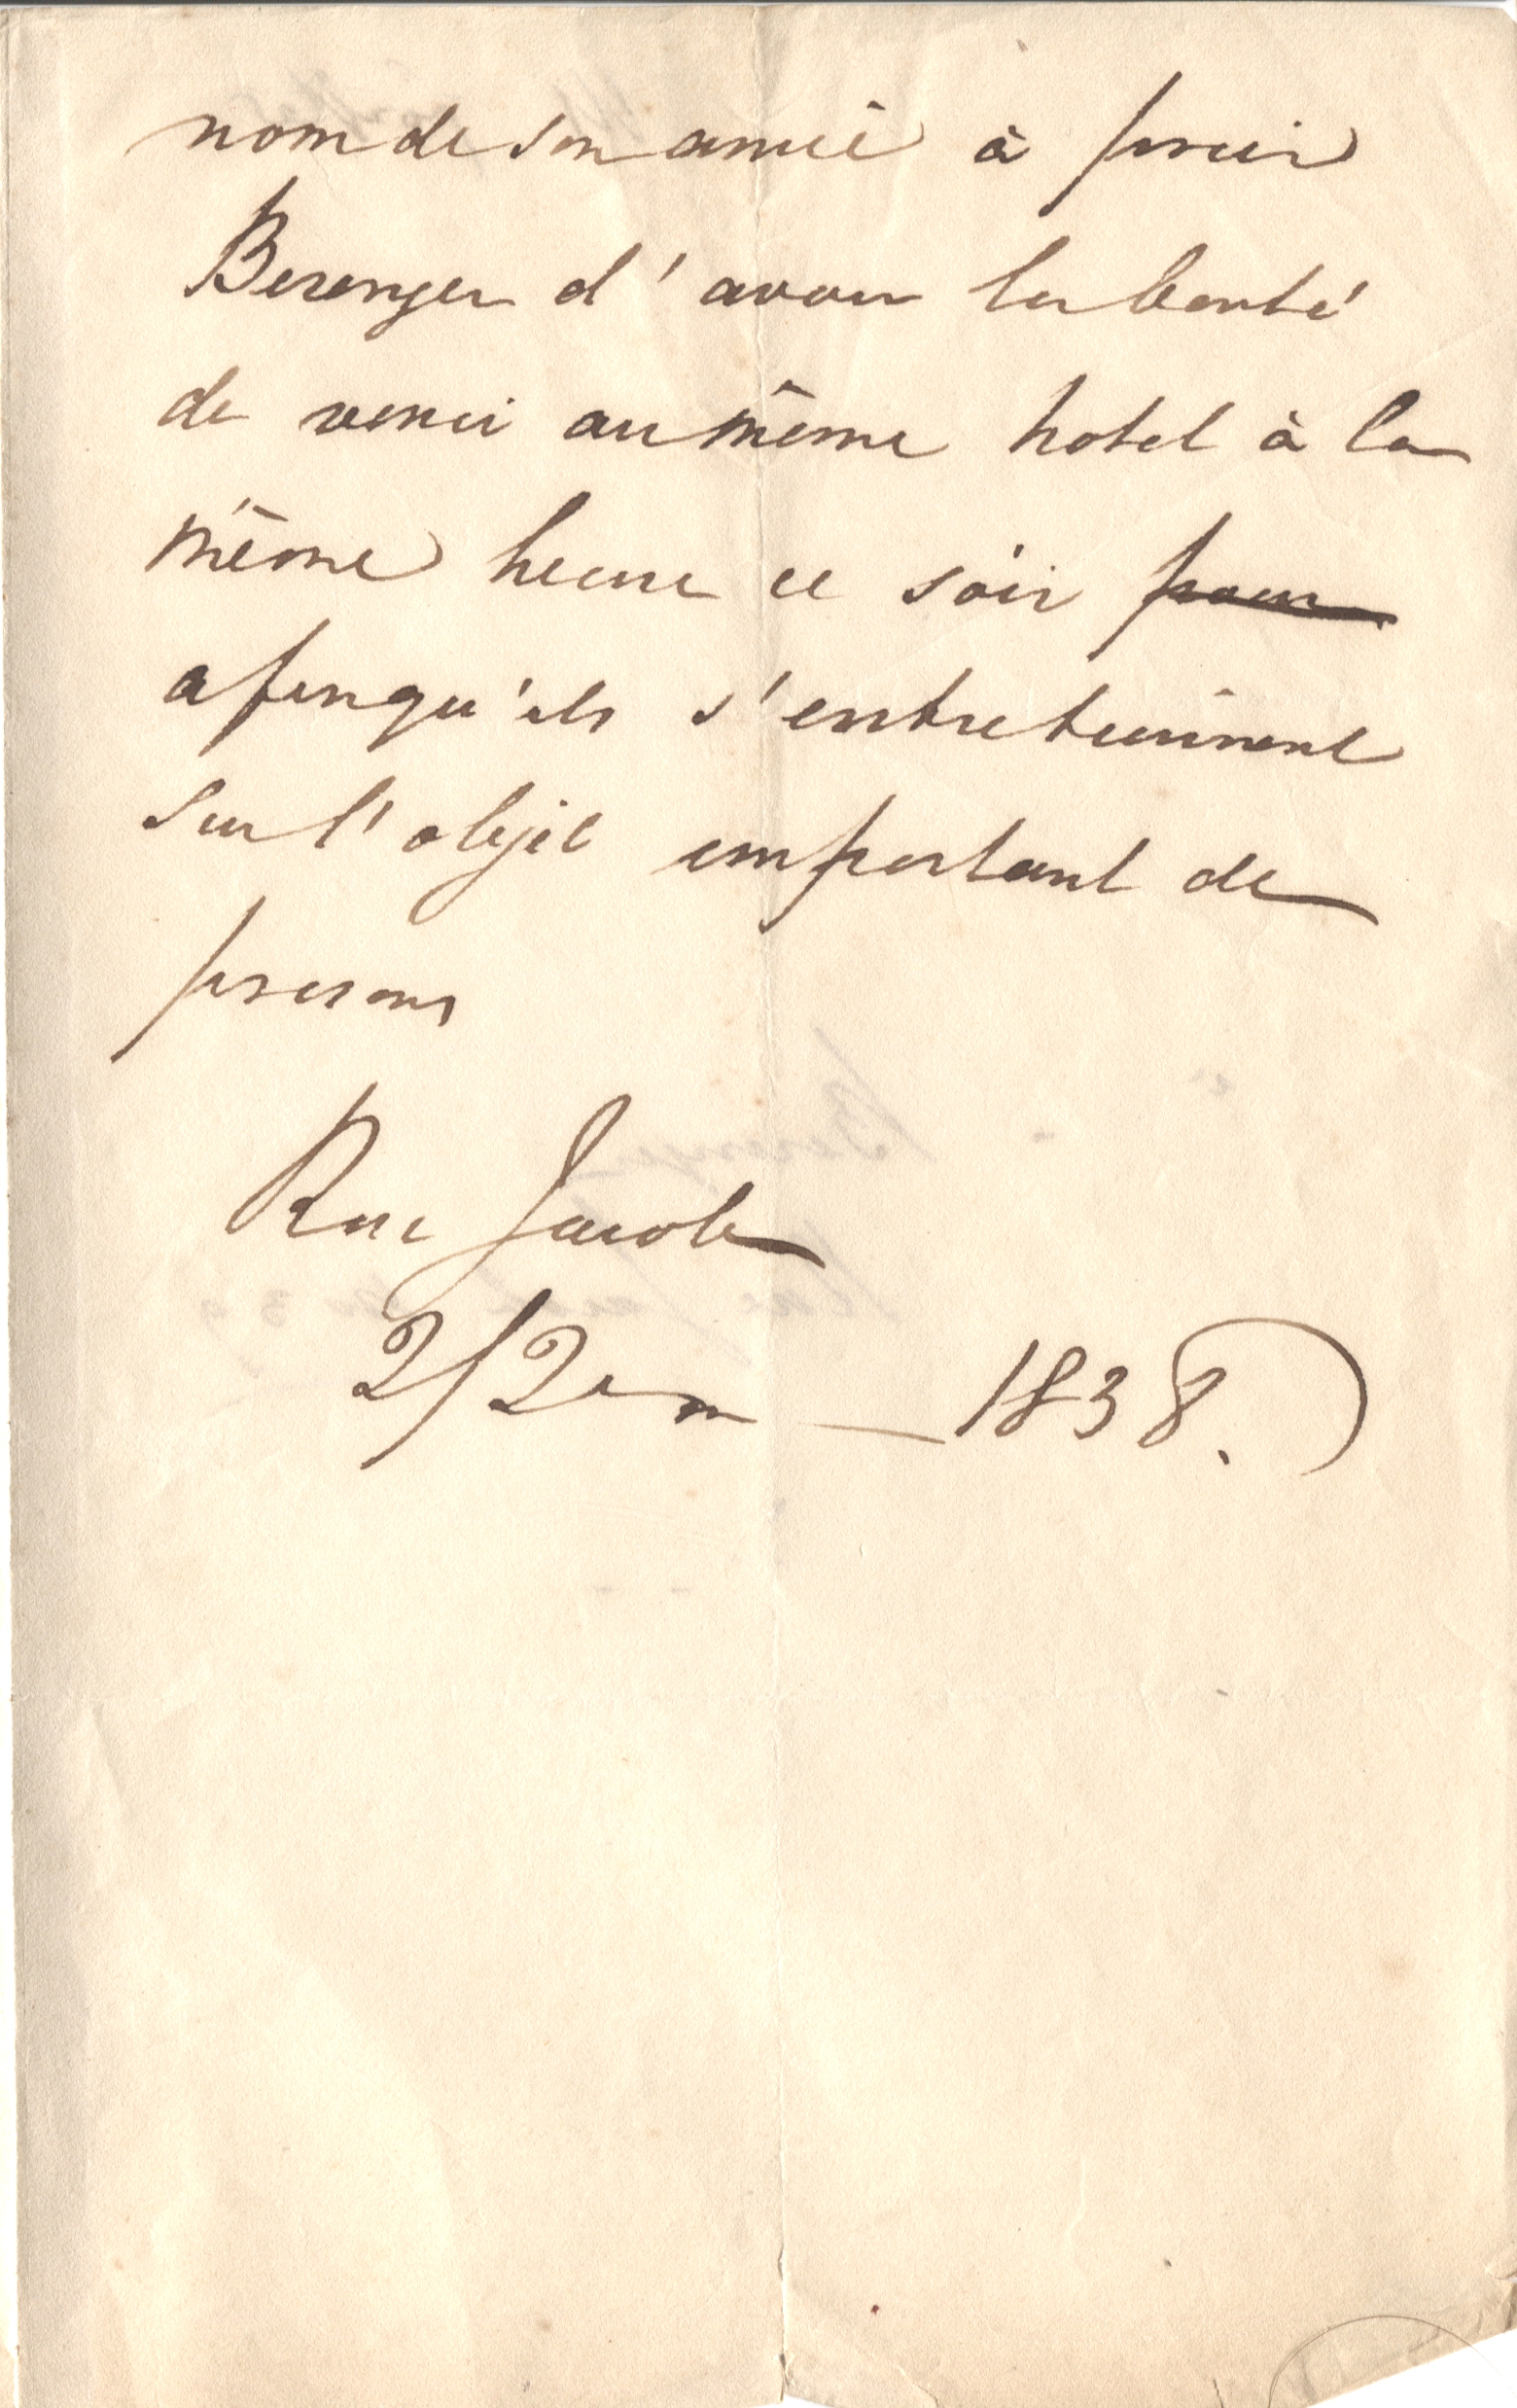 nom de son amie à prier
Berenger d'avoir la bonté
de venir au même hotel à la
même heure ce soir pour
afinqu'ils s'entretiennent
sur l'objet important de
Rue Jacob
2/2 1838.